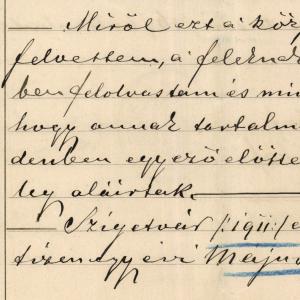 Miről ezt a köz
felvettem, a felekne
ben felolvastam és min
hogy annak tartalm
denben egyező előtte
leg aláirtak.
Szigetvár /:1911:/ e
tizenegy évi Máju